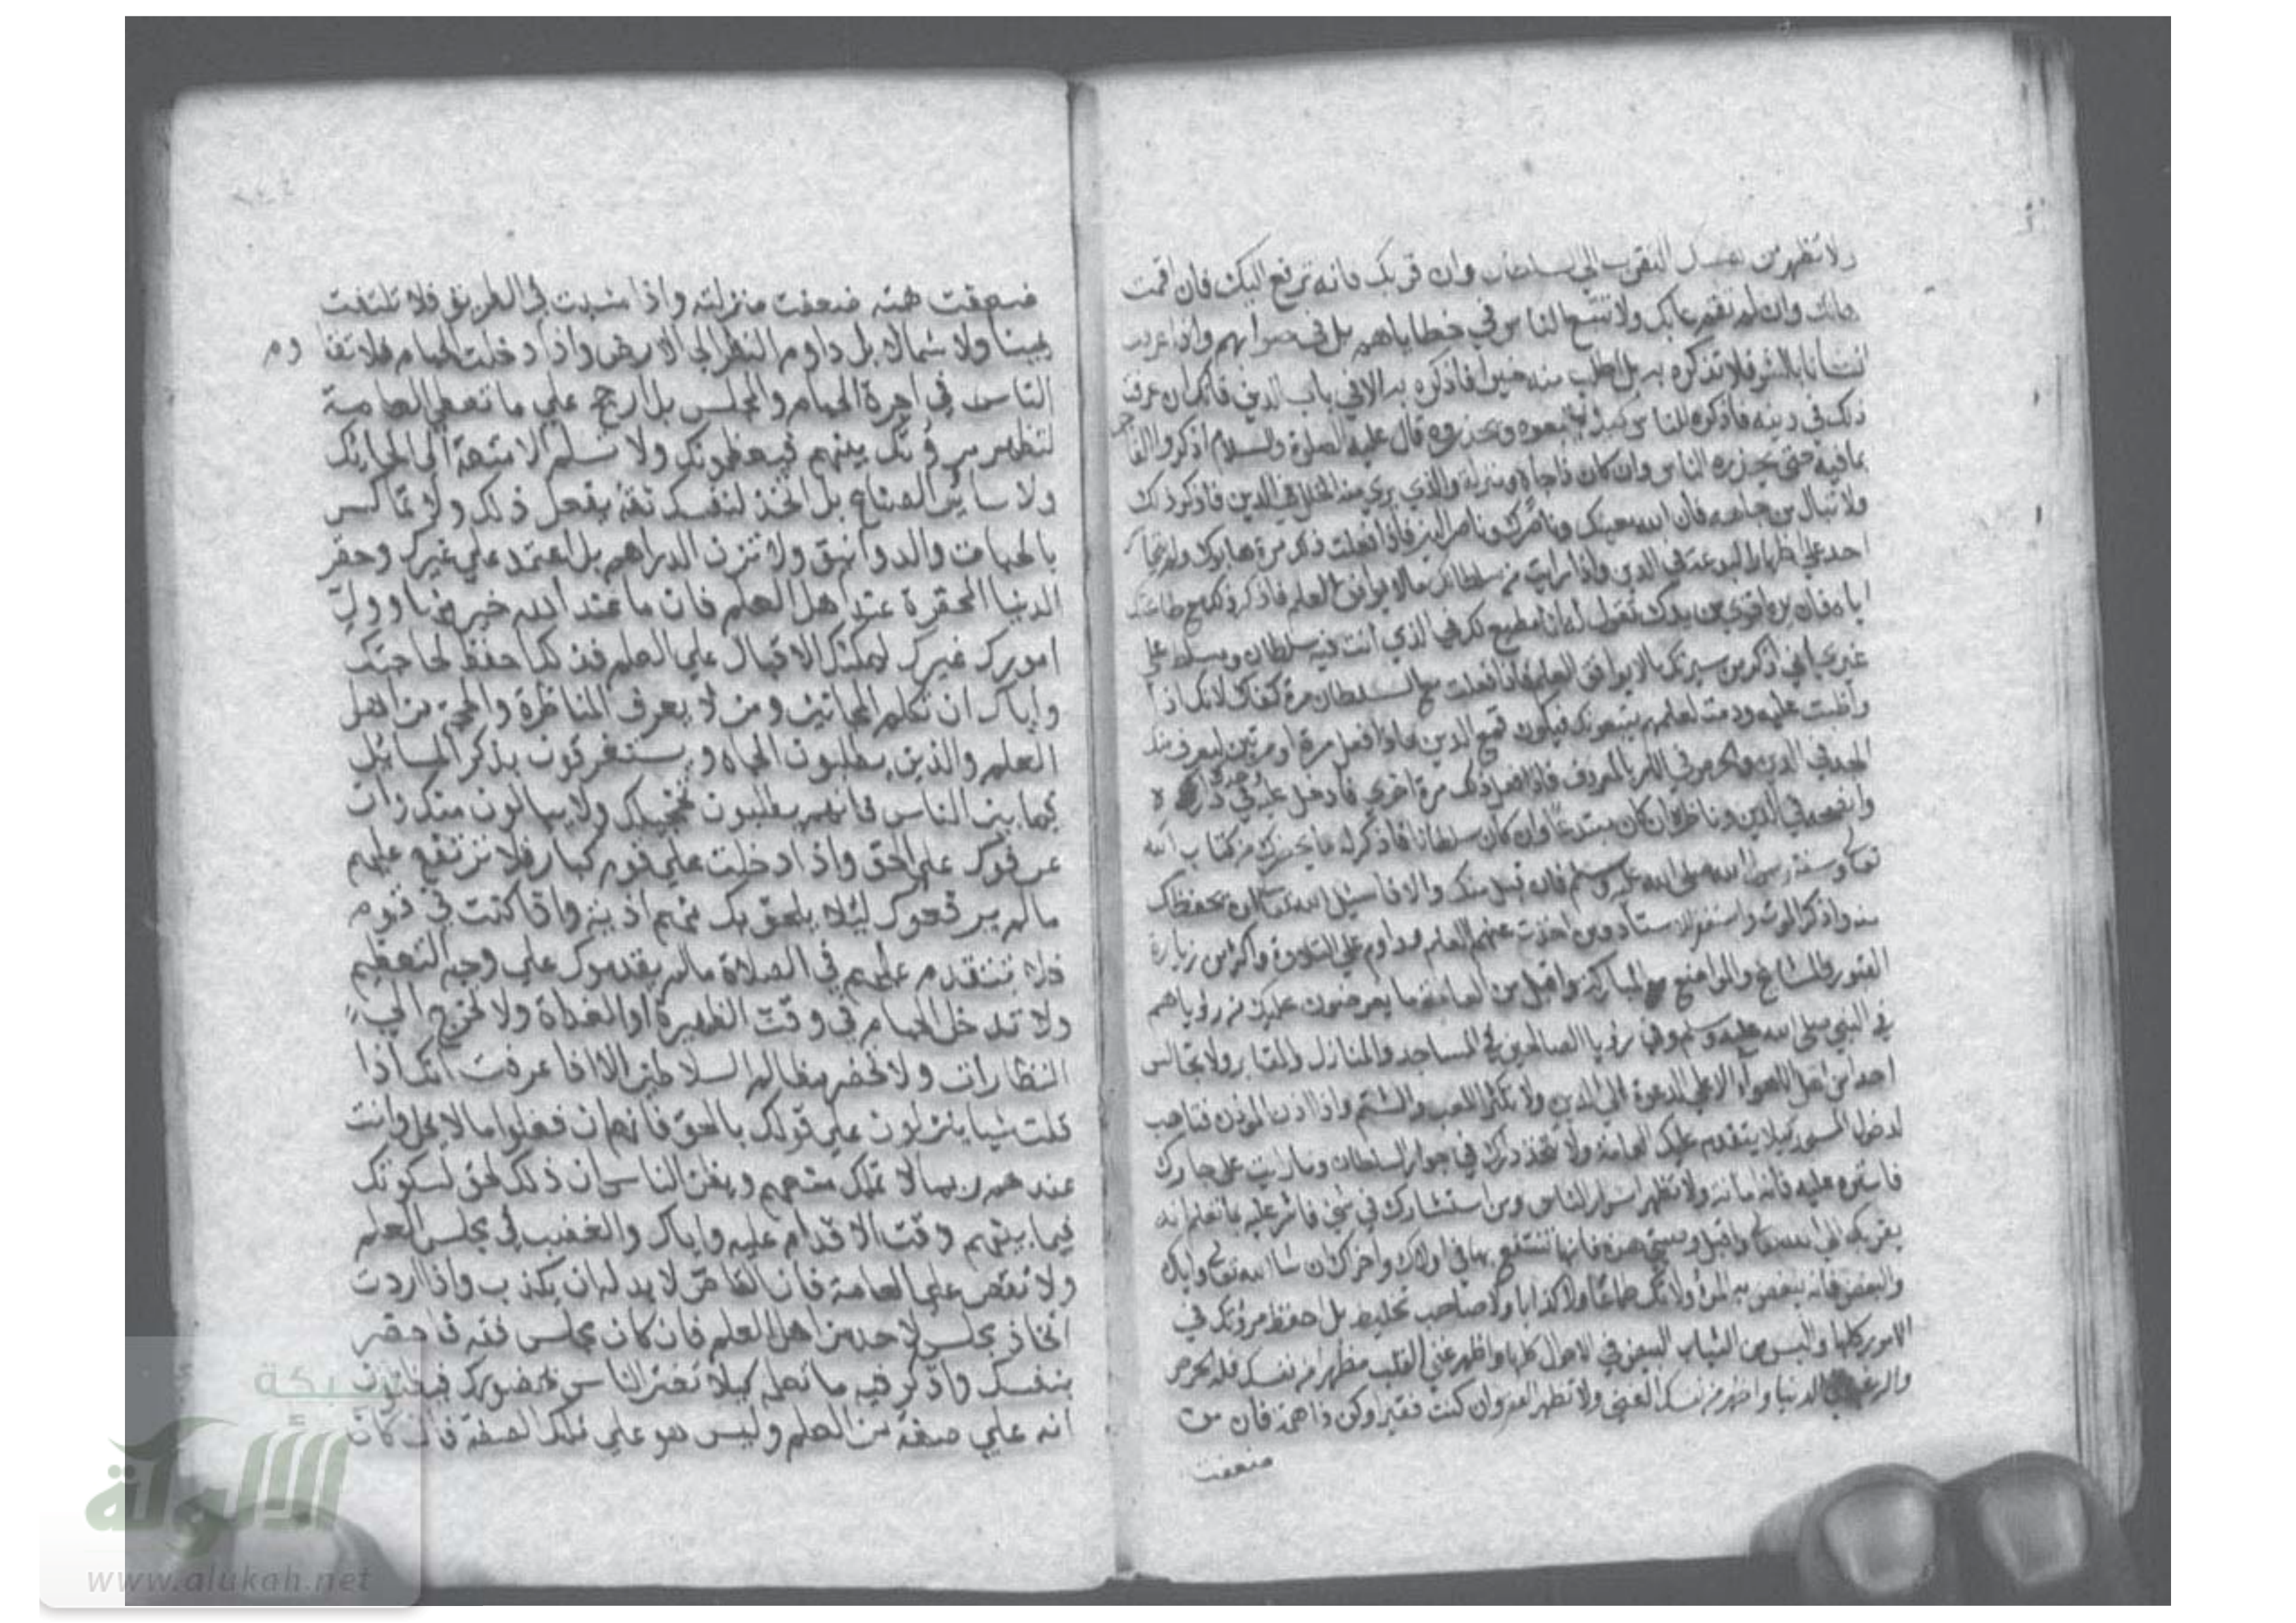 ولا تظهر من نفسك التقرب الي السلطان وان قربك فانه ترفع اليك فان اقمت
هانك وان لم تقم عابك ولا تتبع الناس في خطاياهم بل في صوابهم واذا عرفت
انسانا بالشر فلا تذكره به بل اطلب منه خيرا فاذكره به الا في باب الدين فانك ان عرفت
ذلك في دينه فاذكره للناس كيلا يتبعوه ويحذروه قال عليه الصلوة والسلام اذكروا الفاجر
بما فيه حتى يحذره الناس وان كان ذا جاه ومنزلة والذي يري منه الخلل في الدين فاذكر ذلك
ولا تبال من جاهه فان الله معينك وناصرك وناصر الدين فاذا فعلت ذلك مرة هابوك ولم يتجاسر
احد علي اظهار البدعة في الدين واذا رايت من سلطانك ما لا يوافق العلم فاذكر ذلك مع طاعتك
اياه فان يده اقوي من يدك تقول له انا مطيع لك في الذي انت فيه سلطان ومسلط علي
غير اني اذكر من سيرتك ما لا يوافق العلم فاذا فعلت مع السلطان مرة كفاك لانك اذا
واظبت عليه ودمت لعلهم يتبعونك فيكون قمع الدين فاذا فعل مرة او مرتين ليعرف منك
الجهد في الدين والحرص في الامر بالمعروف فاذا فعل ذلك مرة اخري فادخل عليه وحدك في داره
وانصحه في الدين وناظره ان كان مبتدعا وان كان سلطانا فاذكر له ما يحضرك من كتاب الله
تعالى وسنة رسول الله صلى الله عليه وسلم فان قبل منك والا فاسئل الله تعالى ان يحفظك
منه واذكر الموت واستغفر للاستاد ومن اخذت عنهم العلم وداوم علي التلاوة واكثر من زيارة
القبور والمشايخ والمواضع المباركة واقبل من العامة ما يعرضون عليك من رؤياهم
في النبي صلى الله عليه وسلم وفي رؤيا الصالحين في المساجد والمنازل والمقابر ولا تجالس
احدا من اهل الاهواء الا علي الدعوة الي الدين ولا تكثر اللعب والشتم واذا اذن المؤذن فتاهب
لدخول المسجد كيلا يتقدم عليك العامة ولا تتخذ دارك في جوار السلطان وما رايت علي جارك
فاستره عليه فانه امانة ولا تظهر اسرار الناس ومن استشارك في شئ فاشر عليه بما تعلم انه
يقربك الي الله تعالى واقبل وصيتي هذه فانها تنتفع بها في اولاك واخراك ان شا الله تعالى واياك
والبخل فانه يبغض به المرؤ ولا تك طماعا ولا كذابا ولا صاحب تخليط بل احفظ مروتك في
الامور كلها والبس من الثياب البيض في الاحوال كلها واظهر غني القلب مظهرا من نفسك قلة الحرص
والرغبة في الدنيا واظهر من نفسك الغني ولا تظهر الفقر وان كنت فقيرا وكن ذا همة فان من
ضعفت
ضعفت همته ضعفت منزلته واذا مشيت في الطريق فلا تلتفت
يمينا ولا شمالا بل داوم النظر الي الارض واذا دخلت الحمام فلا تقاوم
الناس في اجرة الحمام والمجلس بل ارجح علي ما تعطي العامة
لتظهر مروتك بينهم فيعظمونك ولا تسلم الامتعة الي الحائك
ولا سائر الصناع بل اتخذ لنفسك ثقة يفعل ذلك ولا تماكس
بالحبات والدوانيق ولا تزن الدراهم بل اعتمد علي غيرك وحقر
الدنيا المحقرة عند اهل العلم فان ما عند الله خير منها وول
امورك غيرك ليمكنك الاقبال علي العلم فذلك احفظ لحاجتك
واياك ان تكلم المجانين ومن لا يعرف المناظرة والحجة من اهل
العلم والذين يطلبون الجاه ويستغرقون بذكر المسائل
فيما بين الناس فانهم يطلبون تخجيلك ولا يبالون منك وان
عرفوك علي الحق واذا دخلت علي قوم كبار فلا ترتفع عليهم
ما لم يرفعوك ليئلا يلحق بك منهم اذية واذا كنت في قوم
فلا تتقدم عليهم في الصلاة ما لم يقدموك علي وجه التعظيم
ولا تدخل الحمام في وقت الظهيرة او الغداة ولا تخرج الي
النظارات ولا تحضر مظالم السلاطين الا اذا عرفت انك اذا
قلت شيا ينزلون علي قولك بالحق فانهم ان فعلوا ما لا يحل وانت
عندهم ربما لا تملك منعهم ويظن الناس ان ذلك لحق لسكوتك
فيما بينهم وقت الاقدام عليه واياك والغضب في مجلس العلم
ولا تقص علي العامة فان القاص لا بد له ان يكذب واذا اردت
اتخاذ مجلس لاحد من اهل العلم فان كان مجلس فقه فاحضر
بنفسك واذكر فيه ما تعلم كيلا تغتر الناس بحضورك فيظنون
انه علي صفة من العلم وليس هو علي تلك الصفة فان كان
شبكة
الألوكة
www.alukah.net